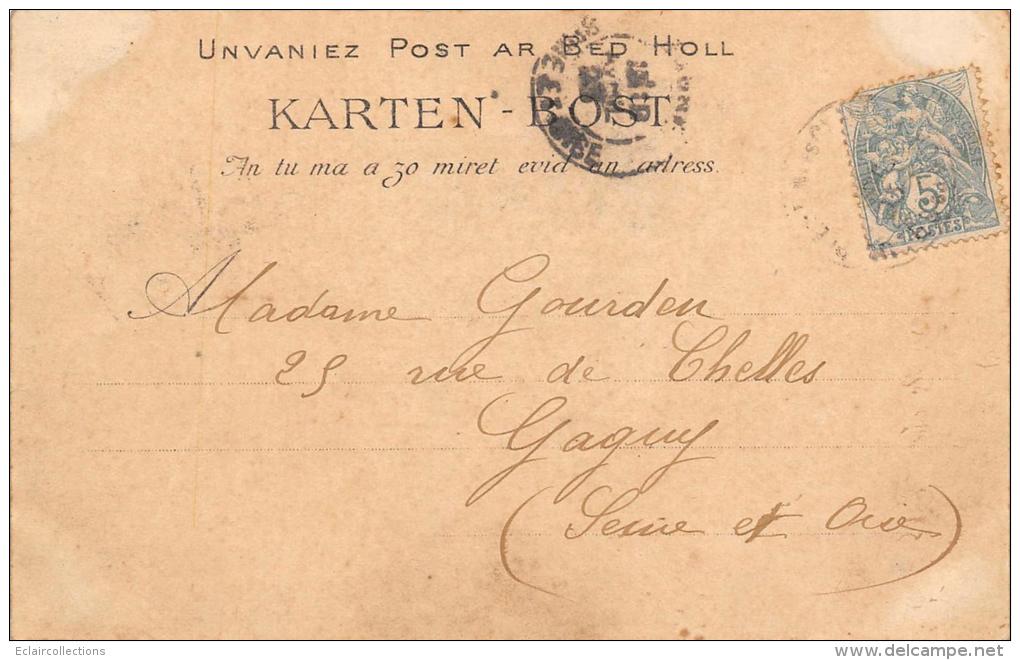 UNVANIEZ POST AR BED HOLL
KARTEN-BOST
An tu ma a zo miret evid an adress.
5
POSTES
Madame Gourden
25 rue de Chelles
Gagny
(Seine et Oise)
Eclaircollections
delcampe.net